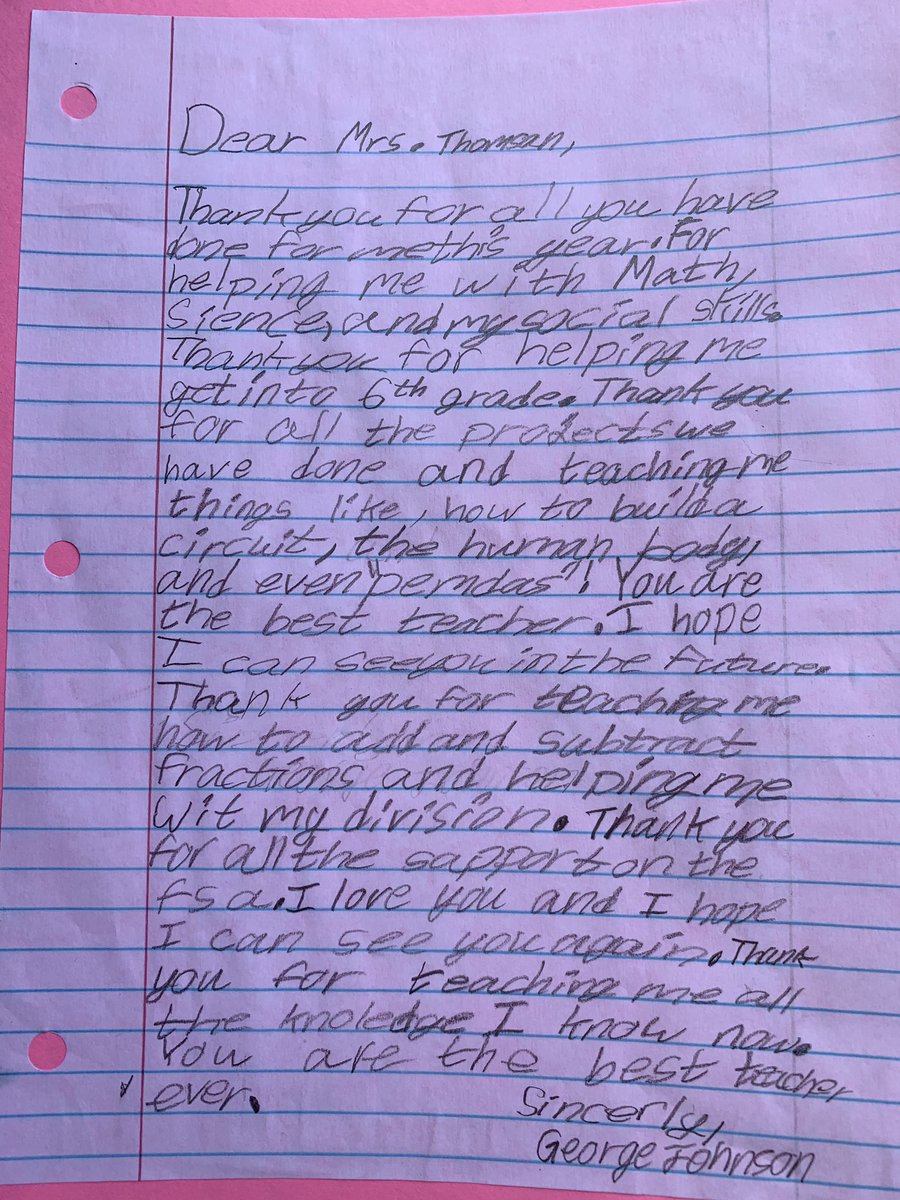 Dear Mrs. Thomsan,
Thank you for all you have
done for me this year. For
helping me with Math,
Sience, and my social skills.
Thank you for helping me
get into 6th grade. Thank you
for all the projects we
have done and teaching me
things like, how to build a
circuit, the human body,
and even "pemdas"! You are
the best teacher. I hope
I can see you in the future.
Thank you for teaching me
how to add and subtract
fractions and helping me
wit my division. Thank you
for all the sapport on the
fsa. I love you and I hope
I can see you again. Thank
you for teaching me all
the knoledge I know now.
You are the best teacher
ever.
Sincerly,
George Johnson